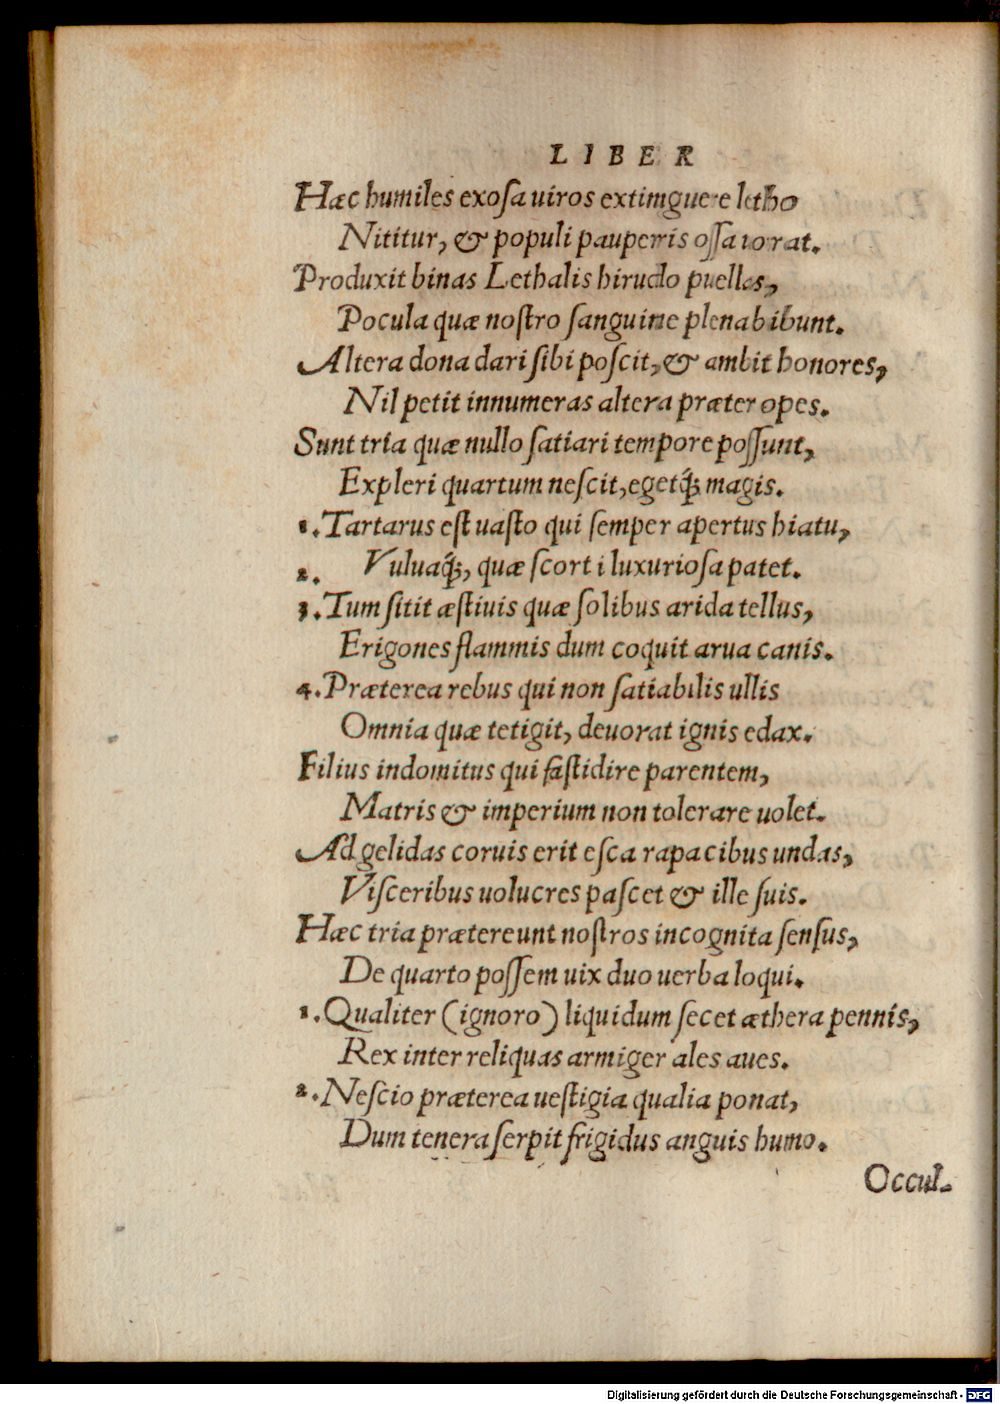 LIBER
Hæc humiles exosa uiros extimguere letho
Nititur, & populi pauperis ossa uorat.
Produxit binas Lethalis hirudo puellas,
Pocula quæ nostro sanguine plena bibunt.
Altera dona dari sibi poscit, & ambit honores,
Nil petit innumeras altera præter opes.
Sunt tria quæ nullo satiari tempore possunt,
Expleri quartum nescit, egetq́; magis.
1. Tartarus est uasto qui semper apertus hiatu,
2. Vuluaq́;, quæ scorti luxuriosa patet.
3. Tum sitit æstiuis quæ solibus arida tellus,
Erigones flammis dum coquit arua canis.
4. Præterea rebus qui non satiabilis ullis
Omnia quæ tetigit, deuorat ignis edax.
Filius indomitus qui fastidire parentem,
Matris & imperium non tolerare uolet.
Ad gelidas coruis erit esca rapacibus undas,
Visceribus uolucres pascet & ille suis.
Hæc tria prætereunt nostros incognita sensus,
De quarto possem uix duo uerba loqui.
1. Qualiter (ignoro) liquidum secet æthera pennis,
Rex inter reliquas armiger ales aues.
2. Nescio præterea uestigia qualia ponat,
Dum tenera serpit frigidus anguis humo.
Occul-
Digitalisierung gefördert durch die Deutsche Forschungsgemeinschaft - DFG